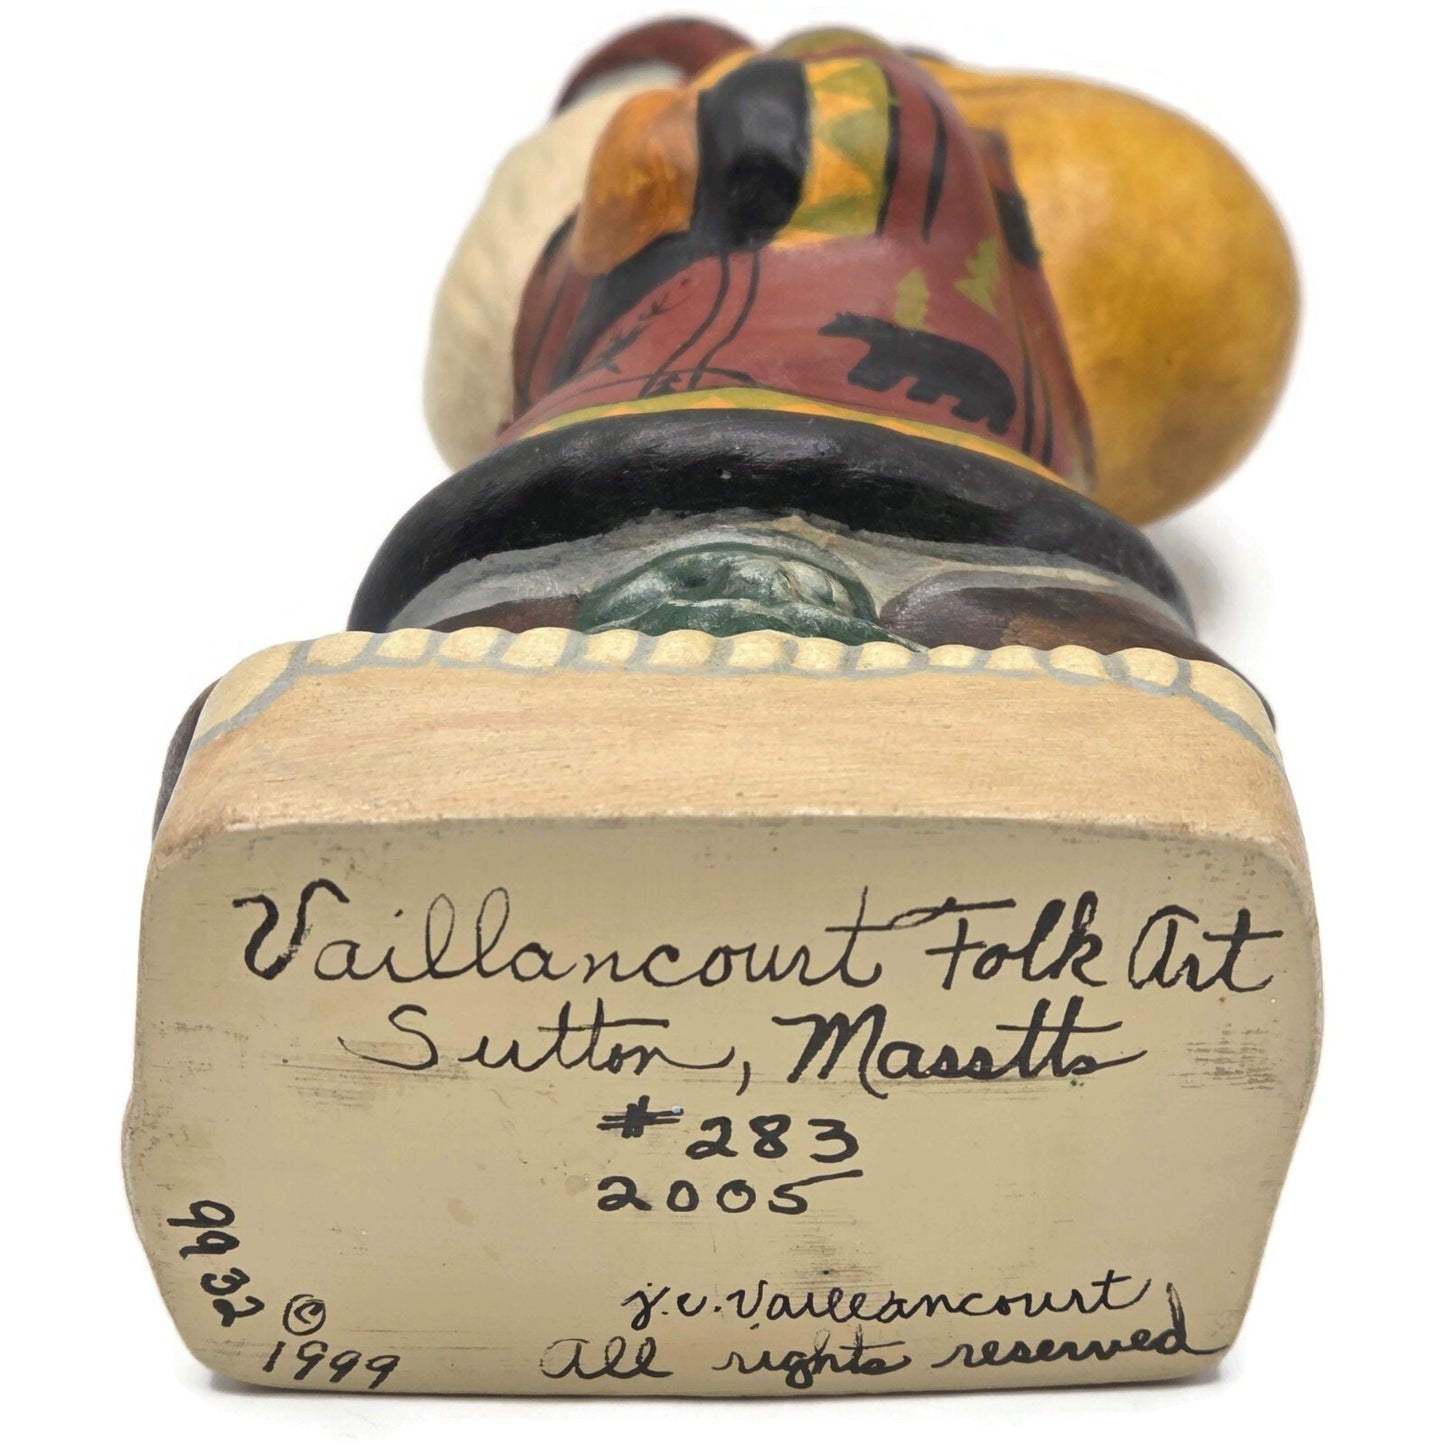 Vaillancourt Folk Art
Sutton, Masstts
#283
2005
9932
© 1999
j.v. Vaillancourt
All rights reserved